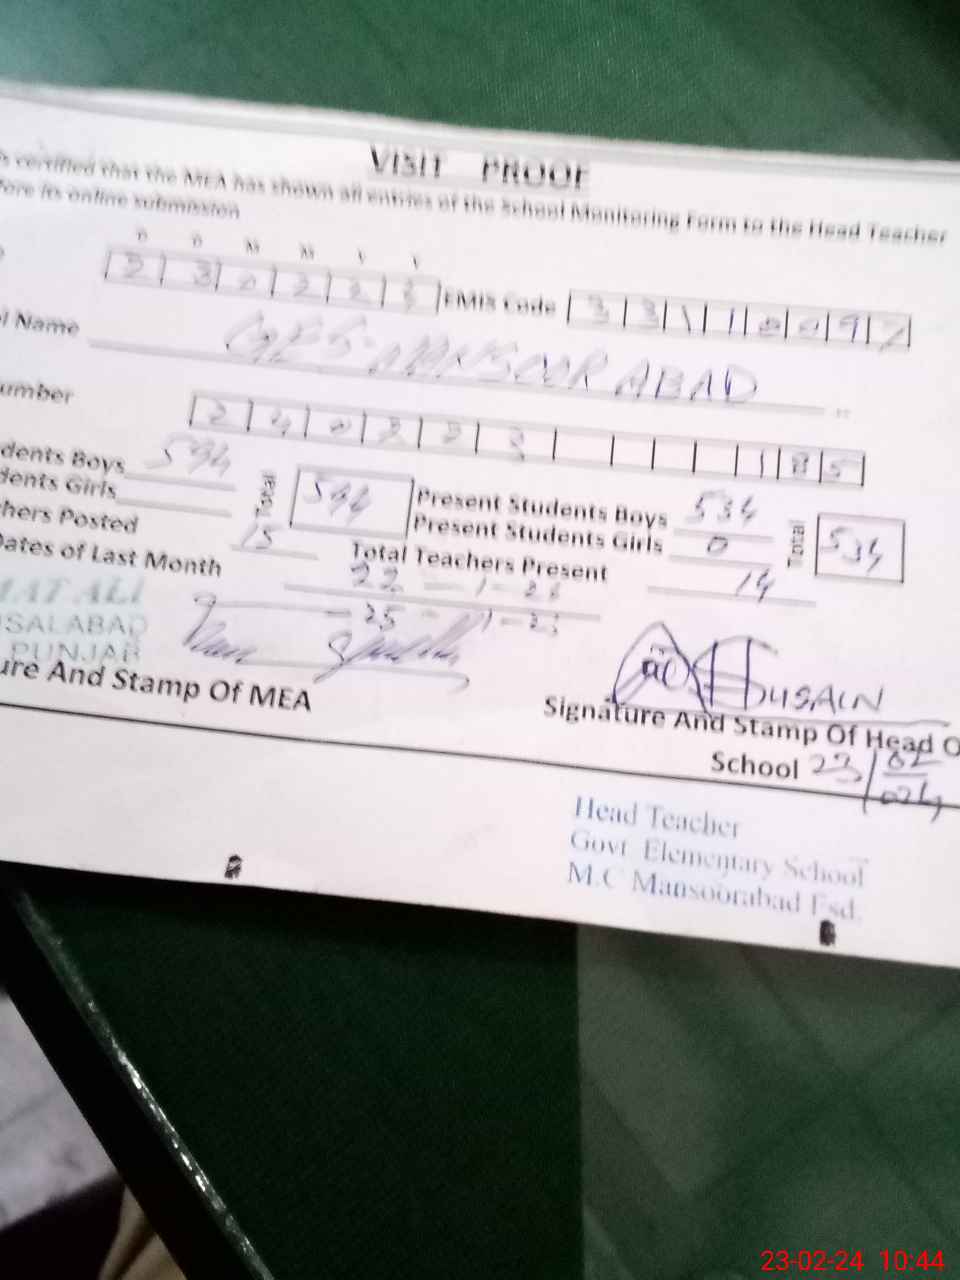 VISIT PROOF
certified that the MEA has shown all entries of the School Monitoring Form to the Head Teacher
fore its online submission
D D M M Y Y
2 3 0 2 2 EMIS Code 3 3 1 1 0 0 9 7
l Name GES MANSOOR ABAD
umber
2 4 0 2 2 3 1 8 5
dents Boys 594 Total 594 Present Students Boys 534 Total 534
dents Girls Present Students Girls 0
chers Posted 15 Total Teachers Present 14
Dates of Last Month 22 - 1 - 
- 25 - 1 - 
MAT ALI
ISALABAD
PUNJAB
HUSAIN
ure And Stamp Of MEA
Signature And Stamp Of Head O
School 23/02/024
Head Teacher
Govt Elementary School
M.C Mansoorabad Fsd.
23-02-24 10:44